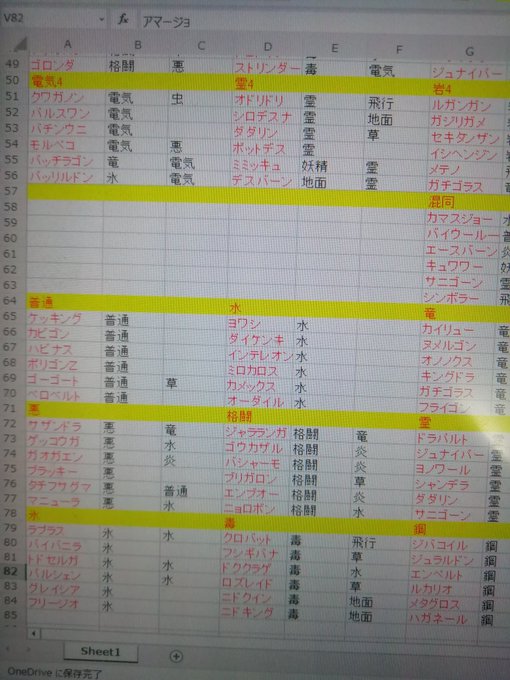 V82 fx アマージョ
A B C D E F G
49 ゴロンダ 格闘 悪 ストリンダー 毒 電気 ジュナイパー
50 電気4 霊4 岩4
51 クワガノン 電気 虫 オドリドリ 霊 飛行 ルガンガン
52 パルスワン 電気 シロデスナ 霊 地面 ガジリガメ
53 バチンウニ 電気 ダダリン 霊 草 セキタンザン
54 モルペコ 電気 悪 ポットデス 霊 イシヘンジン
55 パッチラゴン 竜 電気 ミミッキュ 妖精 霊 メテノ
56 パッリルドン 水 電気 デスバーン 地面 霊 ガチゴラス
57 混同
58 カマスジョー
59 バイウールー
60 エースバーン
61 キュワワー
62 サニゴーン
63 シンボラー
64 普通 水 竜
65 ケッキング 普通 ヨワシ 水 カイリュー 竜
66 カビゴン 普通 ダイケンキ 水 ヌメルゴン 竜
67 ハピナス 普通 インテレオン 水 オノノクス 竜
68 ポリゴンZ 普通 ミロカロス 水 キングドラ 竜
69 ゴーゴート 普通 草 カメックス 水 ガチゴラス 竜
70 ベロベルト 普通 オーダイル 水 フライゴン 竜
71 悪 格闘 霊
72 サザンドラ 悪 竜 ジャラランガ 格闘 竜 ドラパルト 霊
73 ゲッコウガ 悪 水 ゴウカザル 格闘 炎 ジュナイパー 霊
74 ガオガエン 悪 炎 バシャーモ 格闘 炎 ヨノワール 霊
75 ブラッキー 悪 ブリガロン 格闘 草 シャンデラ 霊
76 タチフサグマ 悪 普通 エンブオー 格闘 炎 ダダリン 霊
77 マニューラ 悪 氷 ニョロボン 格闘 水 サニゴーン 霊
78 氷 毒 鋼
79 ラプラス 氷 水 クロバット 毒 飛行 ジバコイル 鋼
80 バイバニラ 氷 フシギバナ 毒 草 ジュラルドン 鋼
81 トドゼルガ 氷 水 ドククラゲ 毒 水 エンペルト 鋼
82 パルシェン 氷 水 ロズレイド 毒 草 ルカリオ 鋼
83 グレイシア 氷 ニドクイン 毒 地面 メタグロス 鋼
84 フリージオ 氷 ニドキング 毒 地面 ハガネール 鋼
85
Sheet1
OneDrive に保存完了